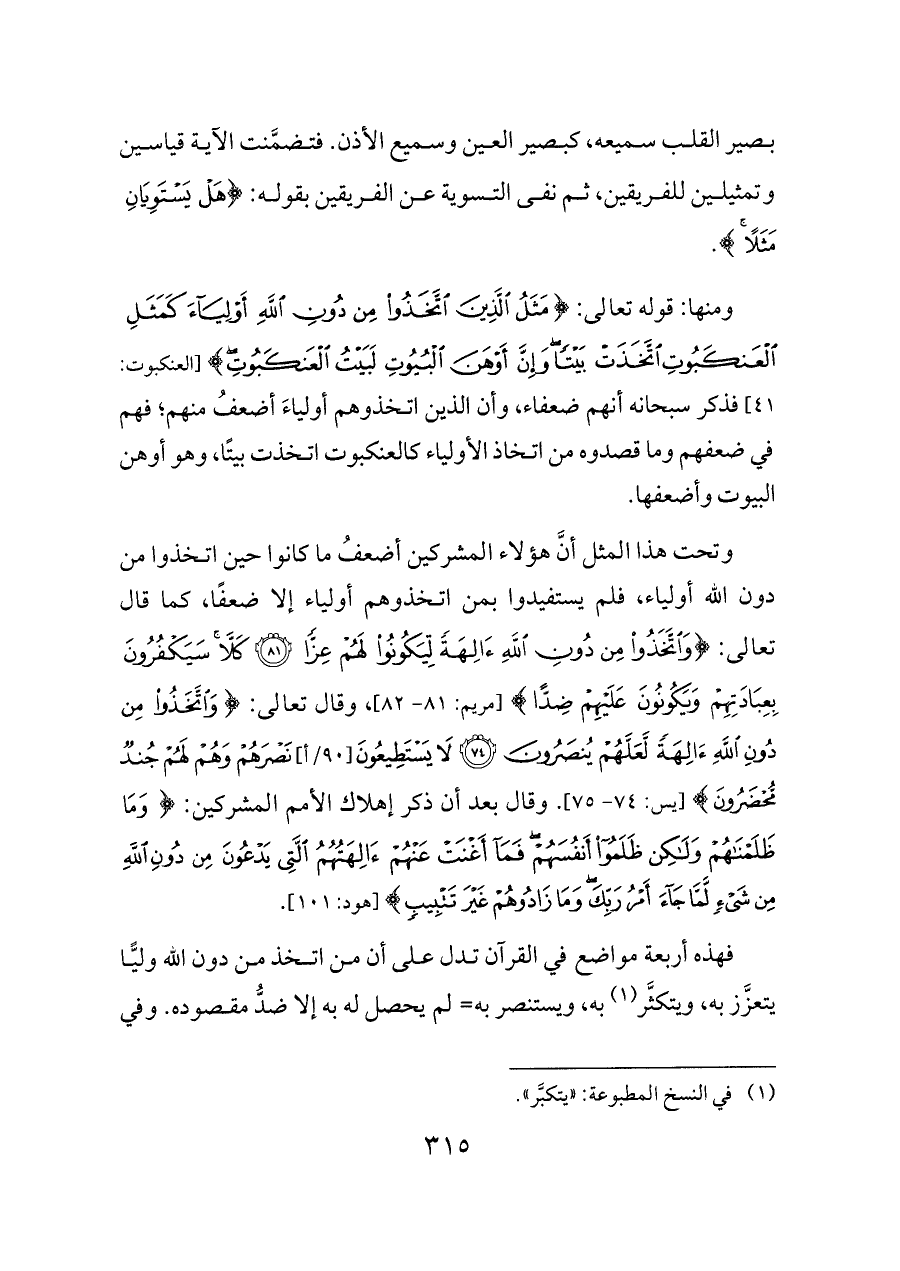 بصير القلب سميعه، كبصير العين وسميع الأذن. فتضمَّنت الآية قياسين
وتمثيلين للفريقين، ثم نفى التسوية عن الفريقين بقوله: ﴿هَلْ يَسْتَوِيَانِ
مَثَلًاۚ﴾.
ومنها: قوله تعالى: ﴿مَثَلُ الَّذِينَ اتَّخَذُوا۟ مِن دُونِ اللَّهِ أَوْلِيَآءَ كَمَثَلِ
الْعَنكَبُوتِ اتَّخَذَتْ بَيْتًاۖ وَإِنَّ أَوْهَنَ الْبُيُوتِ لَبَيْتُ الْعَنكَبُوتِۖ﴾ [العنكبوت:
٤١] فذكر سبحانه أنهم ضعفاء، وأن الذين اتخذوهم أولياءَ أضعفُ منهم؛ فهم
في ضعفهم وما قصدوه من اتخاذ الأولياء كالعنكبوت اتخذت بيتًا، وهو أوهن
البيوت وأضعفها.
وتحت هذا المثل أنَّ هؤلاء المشركين أضعفُ ما كانوا حين اتخذوا من
دون الله أولياء، فلم يستفيدوا بمن اتخذوهم أولياء إلا ضعفًا، كما قال
تعالى: ﴿وَاتَّخَذُوا۟ مِن دُونِ اللَّهِ ءَالِهَةً لِّيَكُونُوا۟ لَهُمْ عِزًّا ۝٨١ كَلَّاۚ سَيَكْفُرُونَ
بِعِبَادَتِهِمْ وَيَكُونُونَ عَلَيْهِمْ ضِدًّا﴾ [مريم: ٨١- ٨٢]، وقال تعالى: ﴿وَاتَّخَذُوا۟ مِن
دُونِ اللَّهِ ءَالِهَةً لَّعَلَّهُمْ يُنصَرُونَ ۝٧٤ لَا يَسْتَطِيعُونَ [٩٠/ أ] نَصْرَهُمْ وَهُمْ لَهُمْ جُندٌ
مُّحْضَرُونَ﴾ [يس: ٧٤- ٧٥]. وقال بعد أن ذكر إهلاك الأمم المشركين: ﴿وَمَا
ظَلَمْنَٰهُمْ وَلَٰكِن ظَلَمُوٓا۟ أَنفُسَهُمْۖ فَمَآ أَغْنَتْ عَنْهُمْ ءَالِهَتُهُمُ الَّتِي يَدْعُونَ مِن دُونِ اللَّهِ
مِن شَيْءٍ لَّمَّا جَآءَ أَمْرُ رَبِّكَۖ وَمَا زَادُوهُمْ غَيْرَ تَتْبِيبٍ﴾ [هود: ١٠١].
فهذه أربعة مواضع في القرآن تدل على أن من اتخذ من دون الله وليًّا
يتعزَّز به، ويتكثَّر(١) به، ويستنصر به= لم يحصل له به إلا ضدُّ مقصوده. وفي
(١) في النسخ المطبوعة: «يتكبَّر».
٣١٥